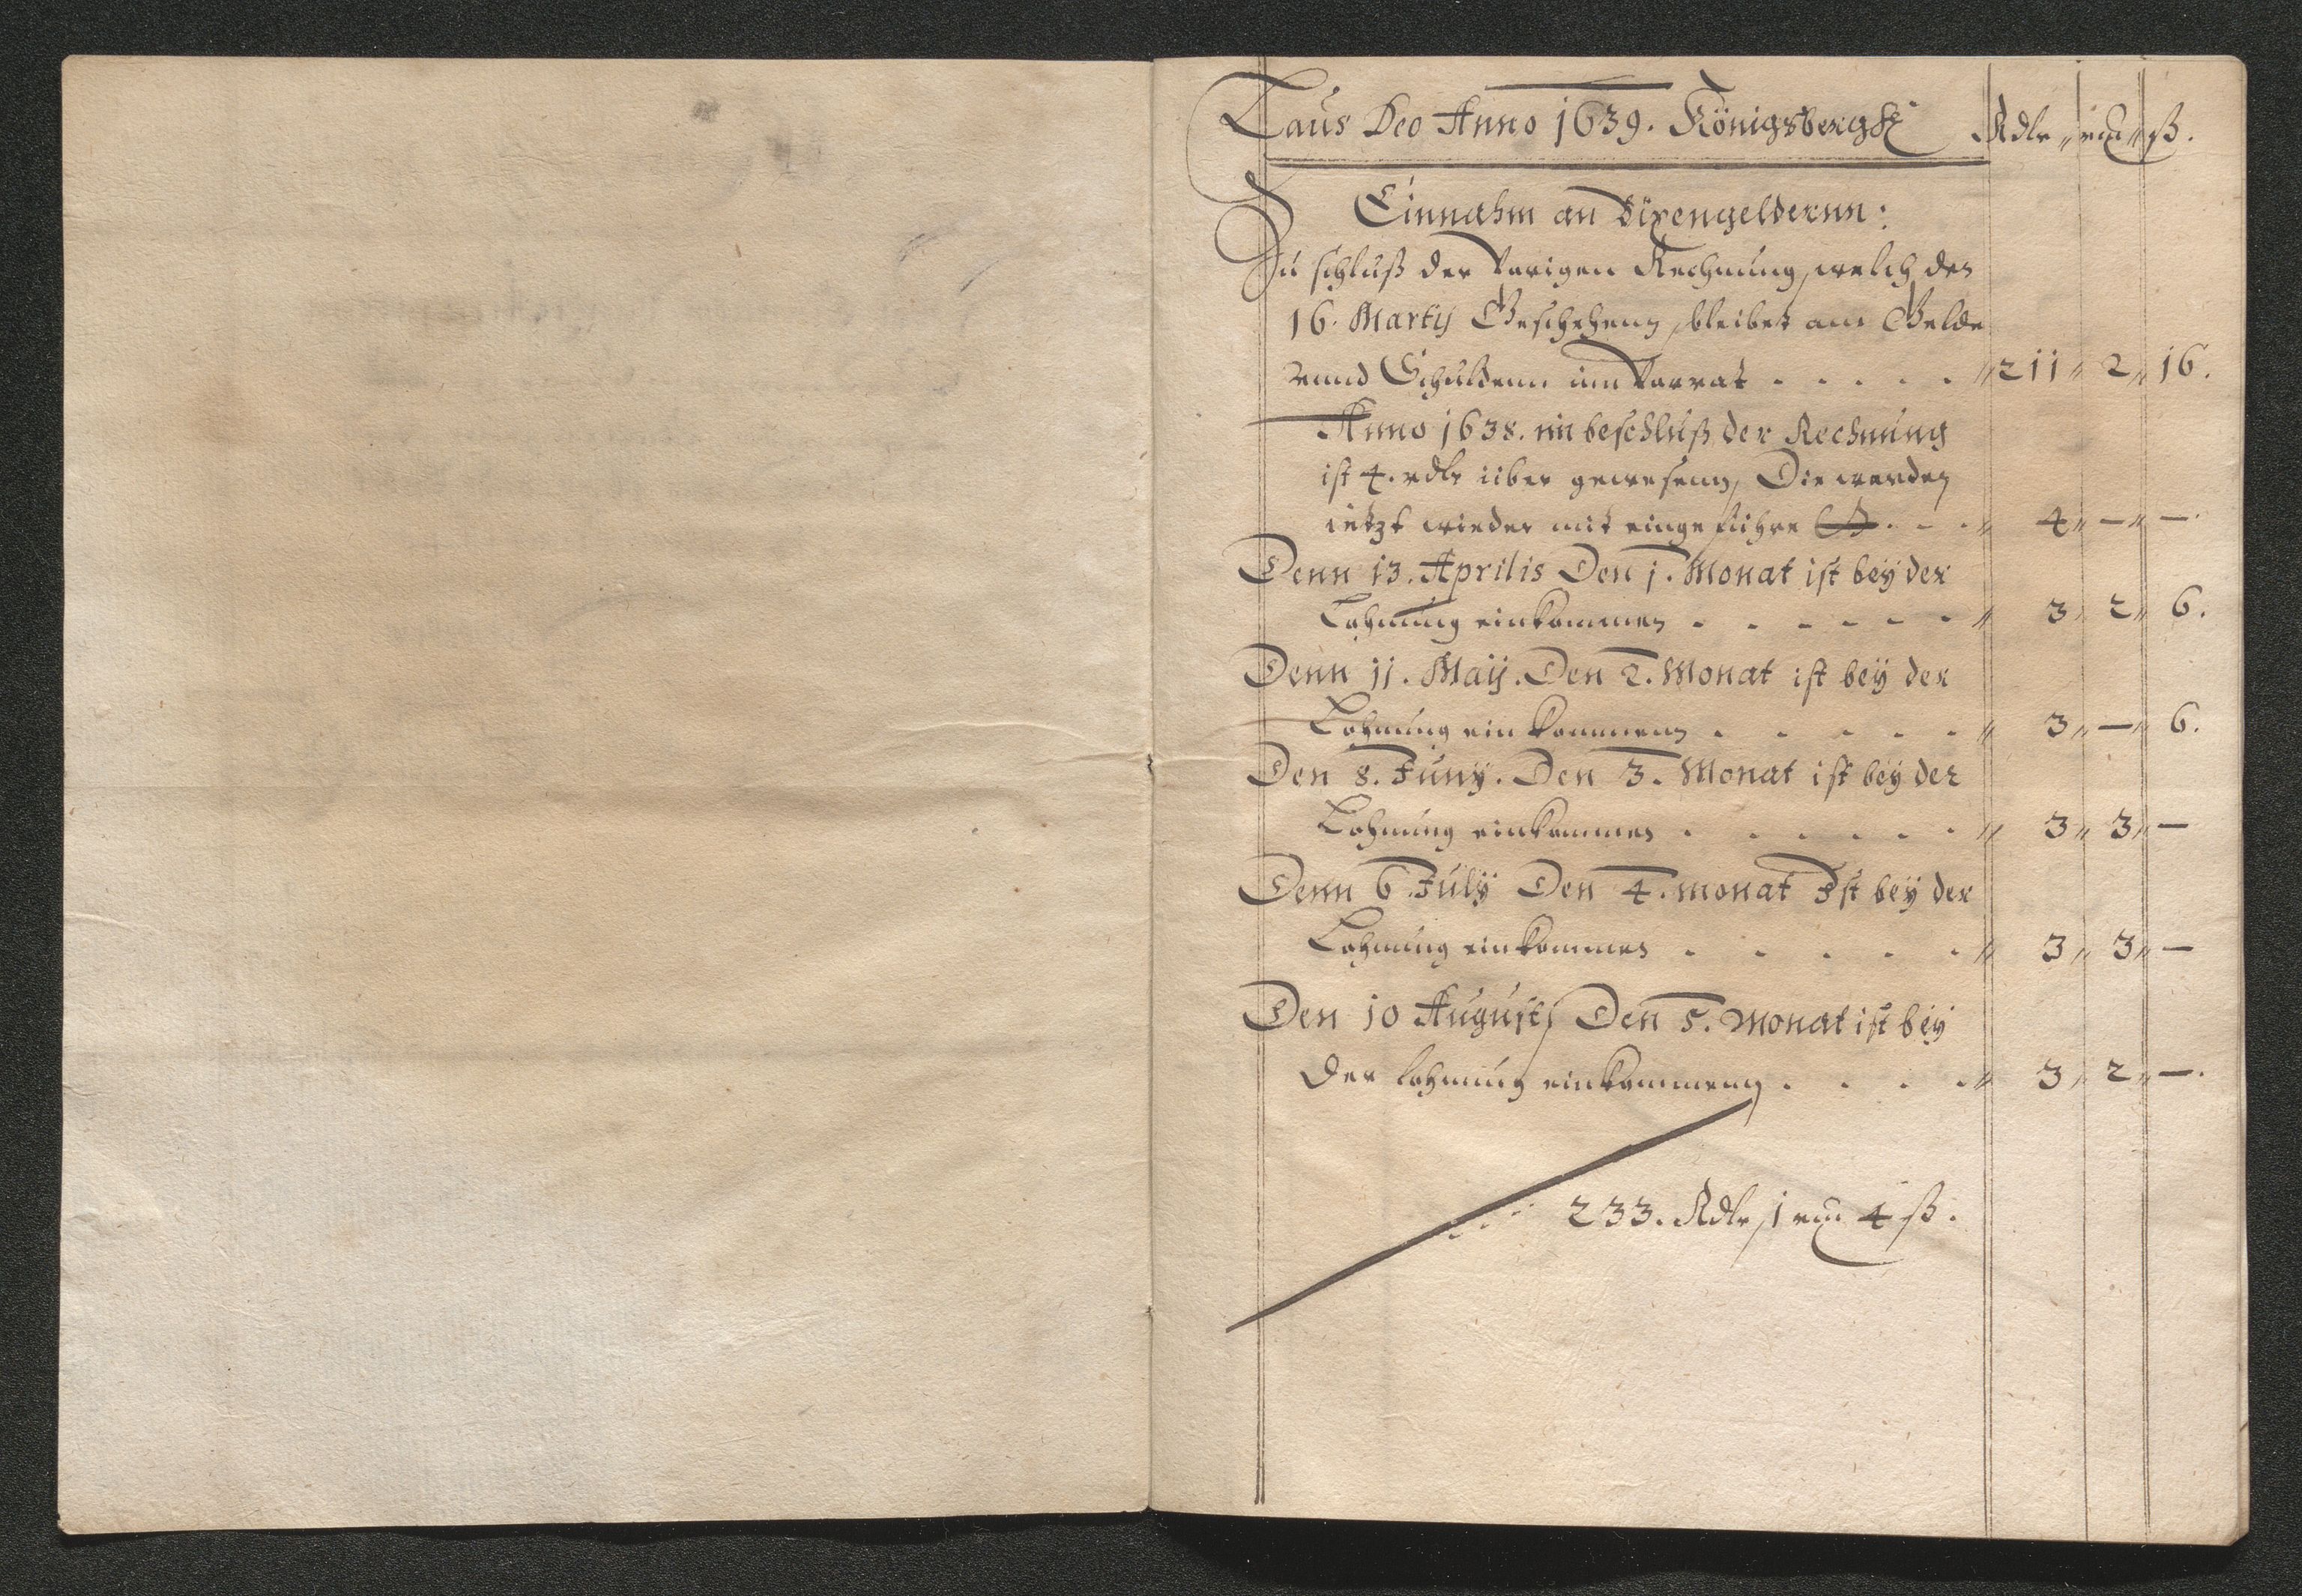 Laus Deo Anno 1639. Königsbergk Rdlr „ „ ß.
Einnahm an Büxengeldernn:
Zu schluß der Vorigen Rechnung, welch den
16. Martij Geschehenn, bleibet ann Gelde
vnnd Schuldenn inn Vorrat . . . . . „ 211 „ 2 „ 16.
Anno 1638. im beschluß der Rechnung
ist 4. rdlr über gewesenn, Die werden
ietzt wieder mit eingeführt . - - . „ 4 „ — „ —.
Denn 13. Aprilis Den 1. Monat ist bey der
Lohnung einkommen . . . . . . „ 3 „ 2 „ 6.
Denn 11. Maij. Den 2. Monat ist bey der
Lohnung einkommenn . . . . . „ 3 „ — „ 6.
Den 8. Juny. Den 3. Monat ist bey der
Lohnung einkommen . . . . . . „ 3 „ 3 „ —
Denn 6 July Den 4. monat Ist bey der
Lohnung einkommen . . . . . „ 3 „ 3 „ —
Den 10 Augusti Den 5. Monat ist bey
Der lohnung einkommenn . . . . „ 3 „ 2 „ —.
233. Rdlr, 1 4 ß.